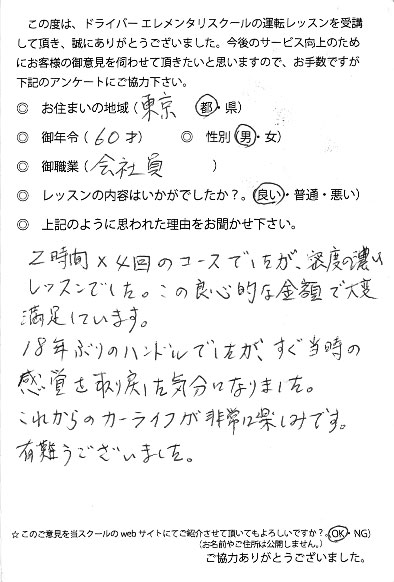 この度は、ドライバーエレメンタリスクールの運転レッスンを受講
して頂き、誠にありがとうございました。今後のサービス向上のため
にお客様の御意見を伺わせて頂きたいと思いますので、お手数ですが
下記のアンケートにご協力下さい。
◎ お住まいの地域(東京 都・県)
◎ 御年令(60才) ◎ 性別(男・女)
◎ 御職業(会社員)
◎ レッスンの内容はいかがでしたか?。(良い・普通・悪い)
◎ 上記のように思われた理由をお聞かせ下さい。
2時間×4回のコースでしたが、密度の濃い
レッスンでした。この良心的な金額で大変
満足しています。
18年ぶりのハンドルでしたが、すぐ当時の
感覚を取り戻した気分になりました。
これからのカーライフが非常に楽しみです。
有難うございました。
☆このご意見を当スクールのwebサイトにてご紹介させて頂いてもよろしいですか?(OK・NG)
(お名前やご住所は公開しません。)
ご協力ありがとうございました。